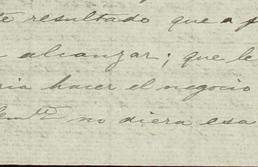 te resultado que a f
alcanzar; que le
ria hacer el negocio
lemte no diera esa